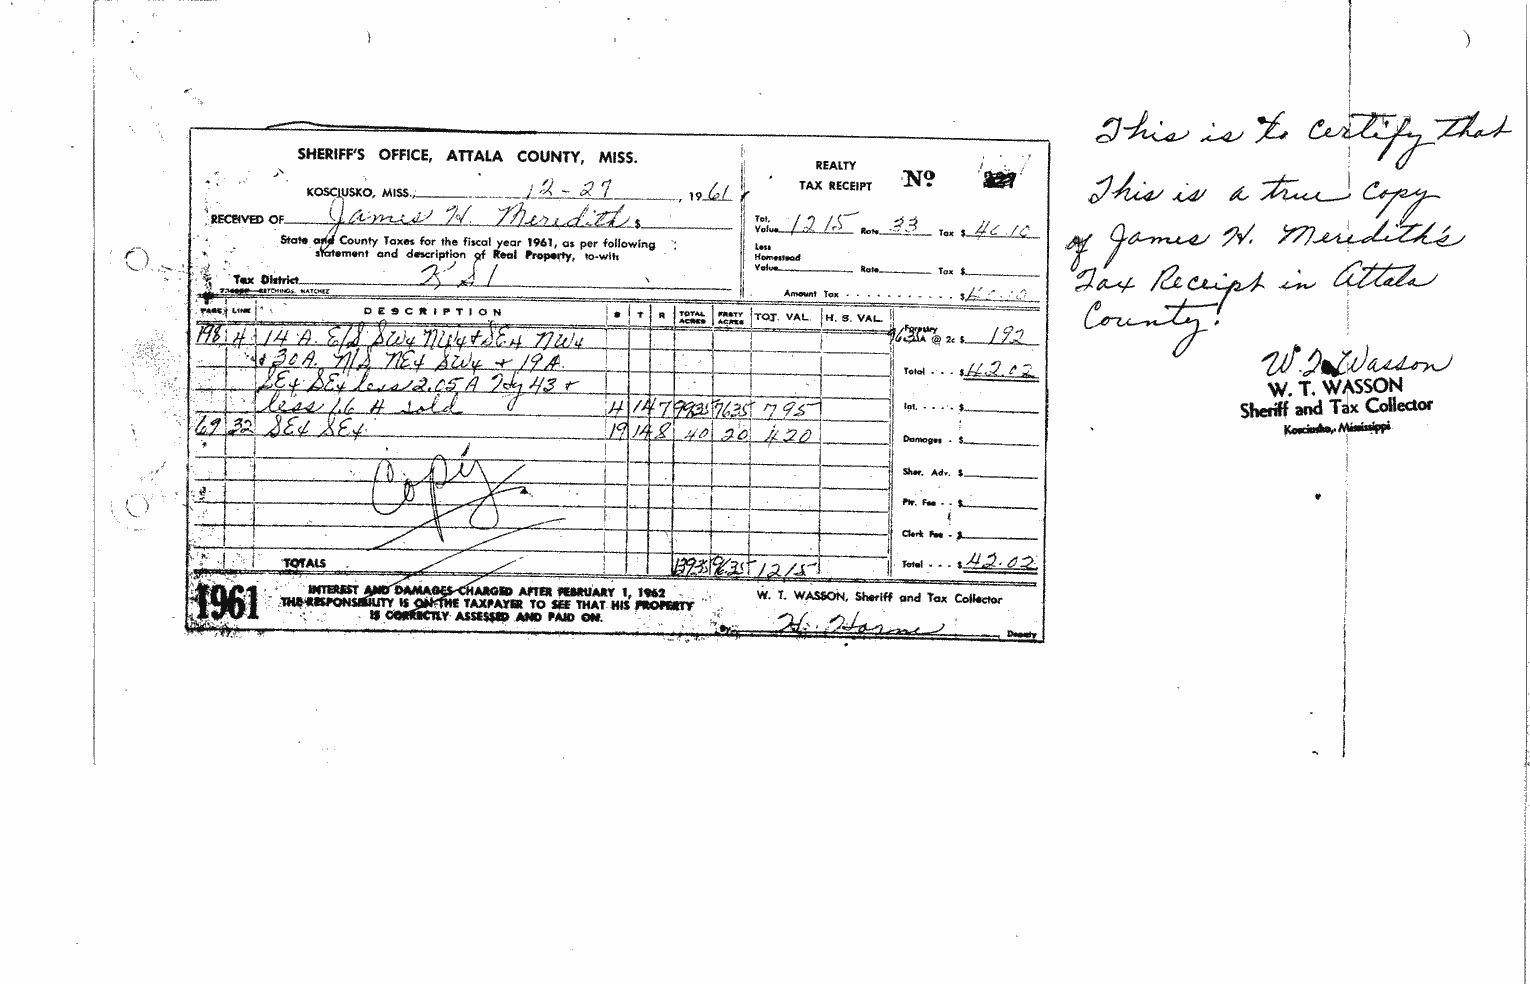 SHERIFF'S OFFICE, ATTALA COUNTY, MISS.
KOSCIUSKO, MISS., 12-27, 1961
RECEIVED OF James H. Meredith $
State and County Taxes for the fiscal year 1961, as per following
statement and description of Real Property, to-wit:
Tax District
REALTY
TAX RECEIPT
No
Tot.
Value 1215 Rate 33 Tax $ 40.10
Less
Homestead
Value Rate Tax $
Amount Tax $ 40.10
PAGE LINE DESCRIPTION S T R TOTAL ACRES FRSTY ACRES TOT. VAL. H. S. VAL.
198 4 14 A. E/S SW4 NW4 & SE4 NW4
& 30 A. N/S NE4 SW4 & 19 A
SE4 SE4 less 2.05 A Hy 43 &
less 1.6 A sold 4 14 7 9935 7635 795
69 32 SE4 SE4 19 14 8 40 20 420
Copy
TOTALS 13935 9635 1215
Forestry
9635 A @ 2c $ 192
Total $ 42.02
Int. $
Damages $
Sher. Adv. $
Ptr. Fee $
Clerk Fee $
Total $ 42.02
1961
INTEREST AND DAMAGES CHARGED AFTER FEBRUARY 1, 1962
THE RESPONSIBILITY IS ON THE TAXPAYER TO SEE THAT HIS PROPERTY
IS CORRECTLY ASSESSED AND PAID ON.
W. T. WASSON, Sheriff and Tax Collector
By H. Horne Deputy
This is to certify that
This is a true copy
of James H. Meredith's
Tax Receipt in Attala
County.
W. T. Wasson
W. T. WASSON
Sheriff and Tax Collector
Kosciusko, Mississippi